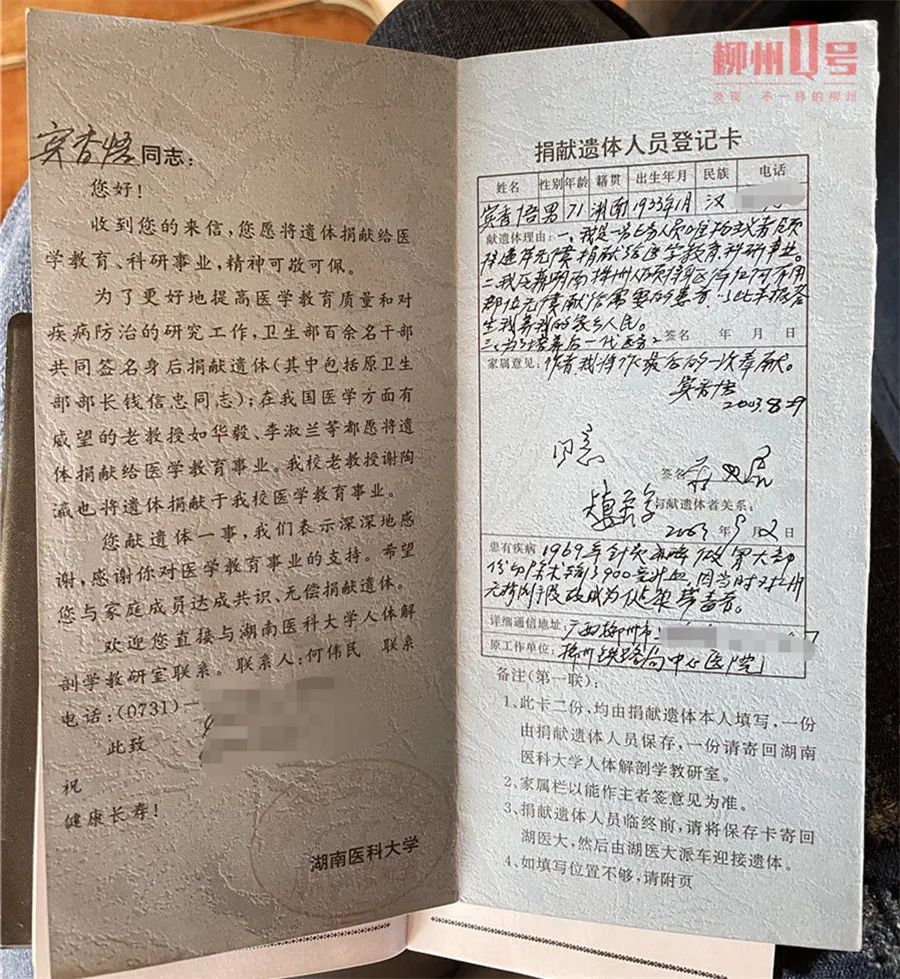 柳州Q号
发现·不一样的柳州
宾香悟同志：
您好！
收到您的来信，您愿将遗体捐献给医
学教育、科研事业，精神可敬可佩。
为了更好地提高医学教育质量和对
疾病防治的研究工作，卫生部百余名干部
共同签名身后捐献遗体（其中包括原卫生
部部长钱信忠同志）；在我国医学方面有
威望的老教授如华毅、李淑兰等都愿将遗
体捐献给医学教育事业。我校老教授谢陶
瀛也将遗体捐献于我校医学教育事业。
您献遗体一事，我们表示深深地感
谢，感谢你对医学教育事业的支持。希望
您与家庭成员达成共识、无偿捐献遗体。
欢迎您直接与湖南医科大学人体解
剖学教研室联系。联系人：何伟民 联系
电话：(0731)—
此致
祝
健康长寿！
湖南医科大学
捐献遗体人员登记卡
姓名 性别 年龄 籍贯 出生年月 民族 电话
宾香悟 男 71 湖南 1933年1月 汉
献遗体理由：一、我是一名医务人员唯物主义者愿
将遗体无偿捐献给医学教育、科研事业。
部位无偿献给需要的患者，以此来报答
生我养我的家乡人民。
三、为了培养后一代医务
签名 年 月 日
家属意见：作者我将作最后的一次奉献。
宾香悟
2003.8.29
同意
签名
与献遗体者关系：
2003年9月2日
患有疾病 1969年针灸麻醉做胃大部
份切除术输了900毫升血，因当时对丙肝
详细通信地址：广西柳州市
原工作单位：柳州铁路局中心医院
备注(第一联)：
1、此卡二份，均由捐献遗体本人填写，一份
由捐献遗体人员保存，一份请寄回湖南
医科大学人体解剖学教研室。
2、家属栏以能作主者签意见为准。
3、捐献遗体人员临终前，请将保存卡寄回
湖医大，然后由湖医大派车迎接遗体。
4、如填写位置不够，请附页